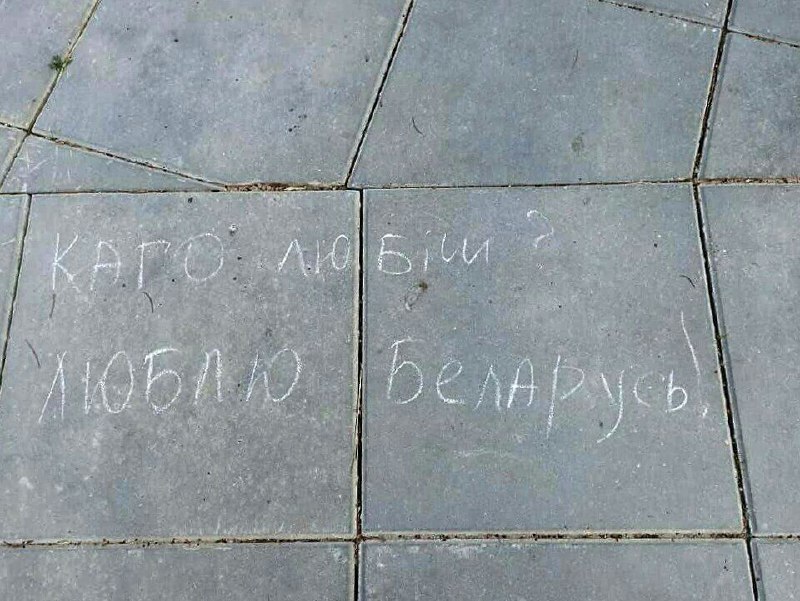 КАГО ЛЮБІШ?
ЛЮБЛЮ БЕЛАРУСЬ!